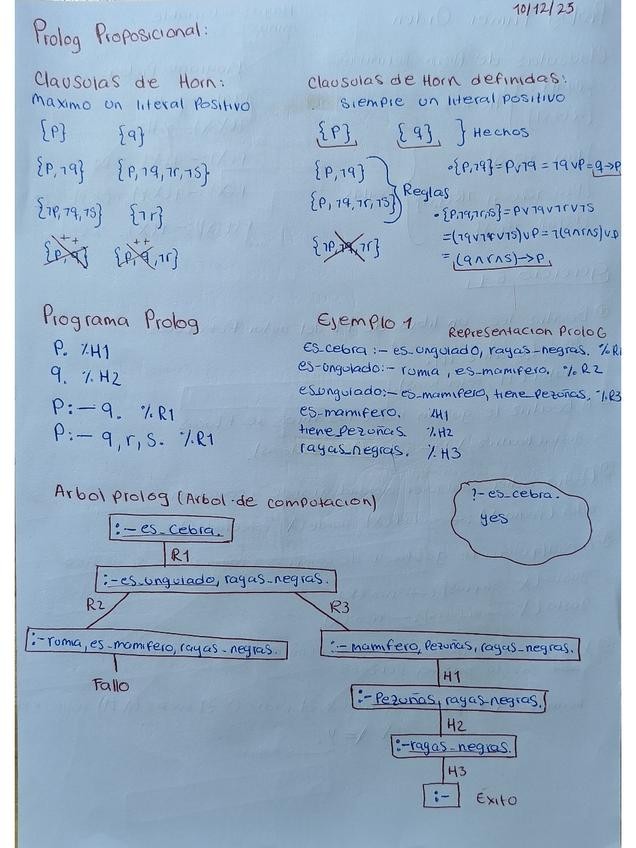 10/12/25
Prolog Proposicional:
Clausulas de Horn:
maximo un literal positivo
{p} {q}
{p,¬q} {p,¬q,¬r,¬s}
{¬p,¬q,¬s} {¬r}
++ ++
{p,q} {p,q,¬r}
Clausulas de Horn definidas:
siempre un literal positivo
{p} {q} } Hechos
{p,¬q}
{p,¬q,¬r,¬s} Reglas
{¬p,¬q,¬r}
•{p,¬q}=p∨¬q=¬q∨p=q→p
•{p,¬q,¬r,¬s}=p∨¬q∨¬r∨¬s
=(¬q∨¬r∨¬s)∨p=¬(q∧r∧s)∨p
=(q∧r∧s)→p
Programa Prolog
p. %H1
q. %H2
p:-q. %R1
p:-q,r,s. %R1
Ejemplo 1
Representacion Prolog
es_cebra:-es_ungulado, rayas_negras. %R1
es-ungulado:-rumia, es_mamifero. %R2
esungulado:-es_mamifero, tiene_pezuñas. %R3
es_mamifero. %H1
tiene_pezuñas %H2
rayas_negras. %H3
Arbol prolog (Arbol de computacion)
?-es_cebra.
yes
:-es_cebra.
R1
:-es_ungulado, rayas_negras.
R2 R3
:-rumia, es_mamifero, rayas_negras.
Fallo
:-mamifero, pezuñas, rayas_negras.
H1
:-Pezuñas, rayas-negras.
H2
:-rayas_negras.
H3
:- Exito